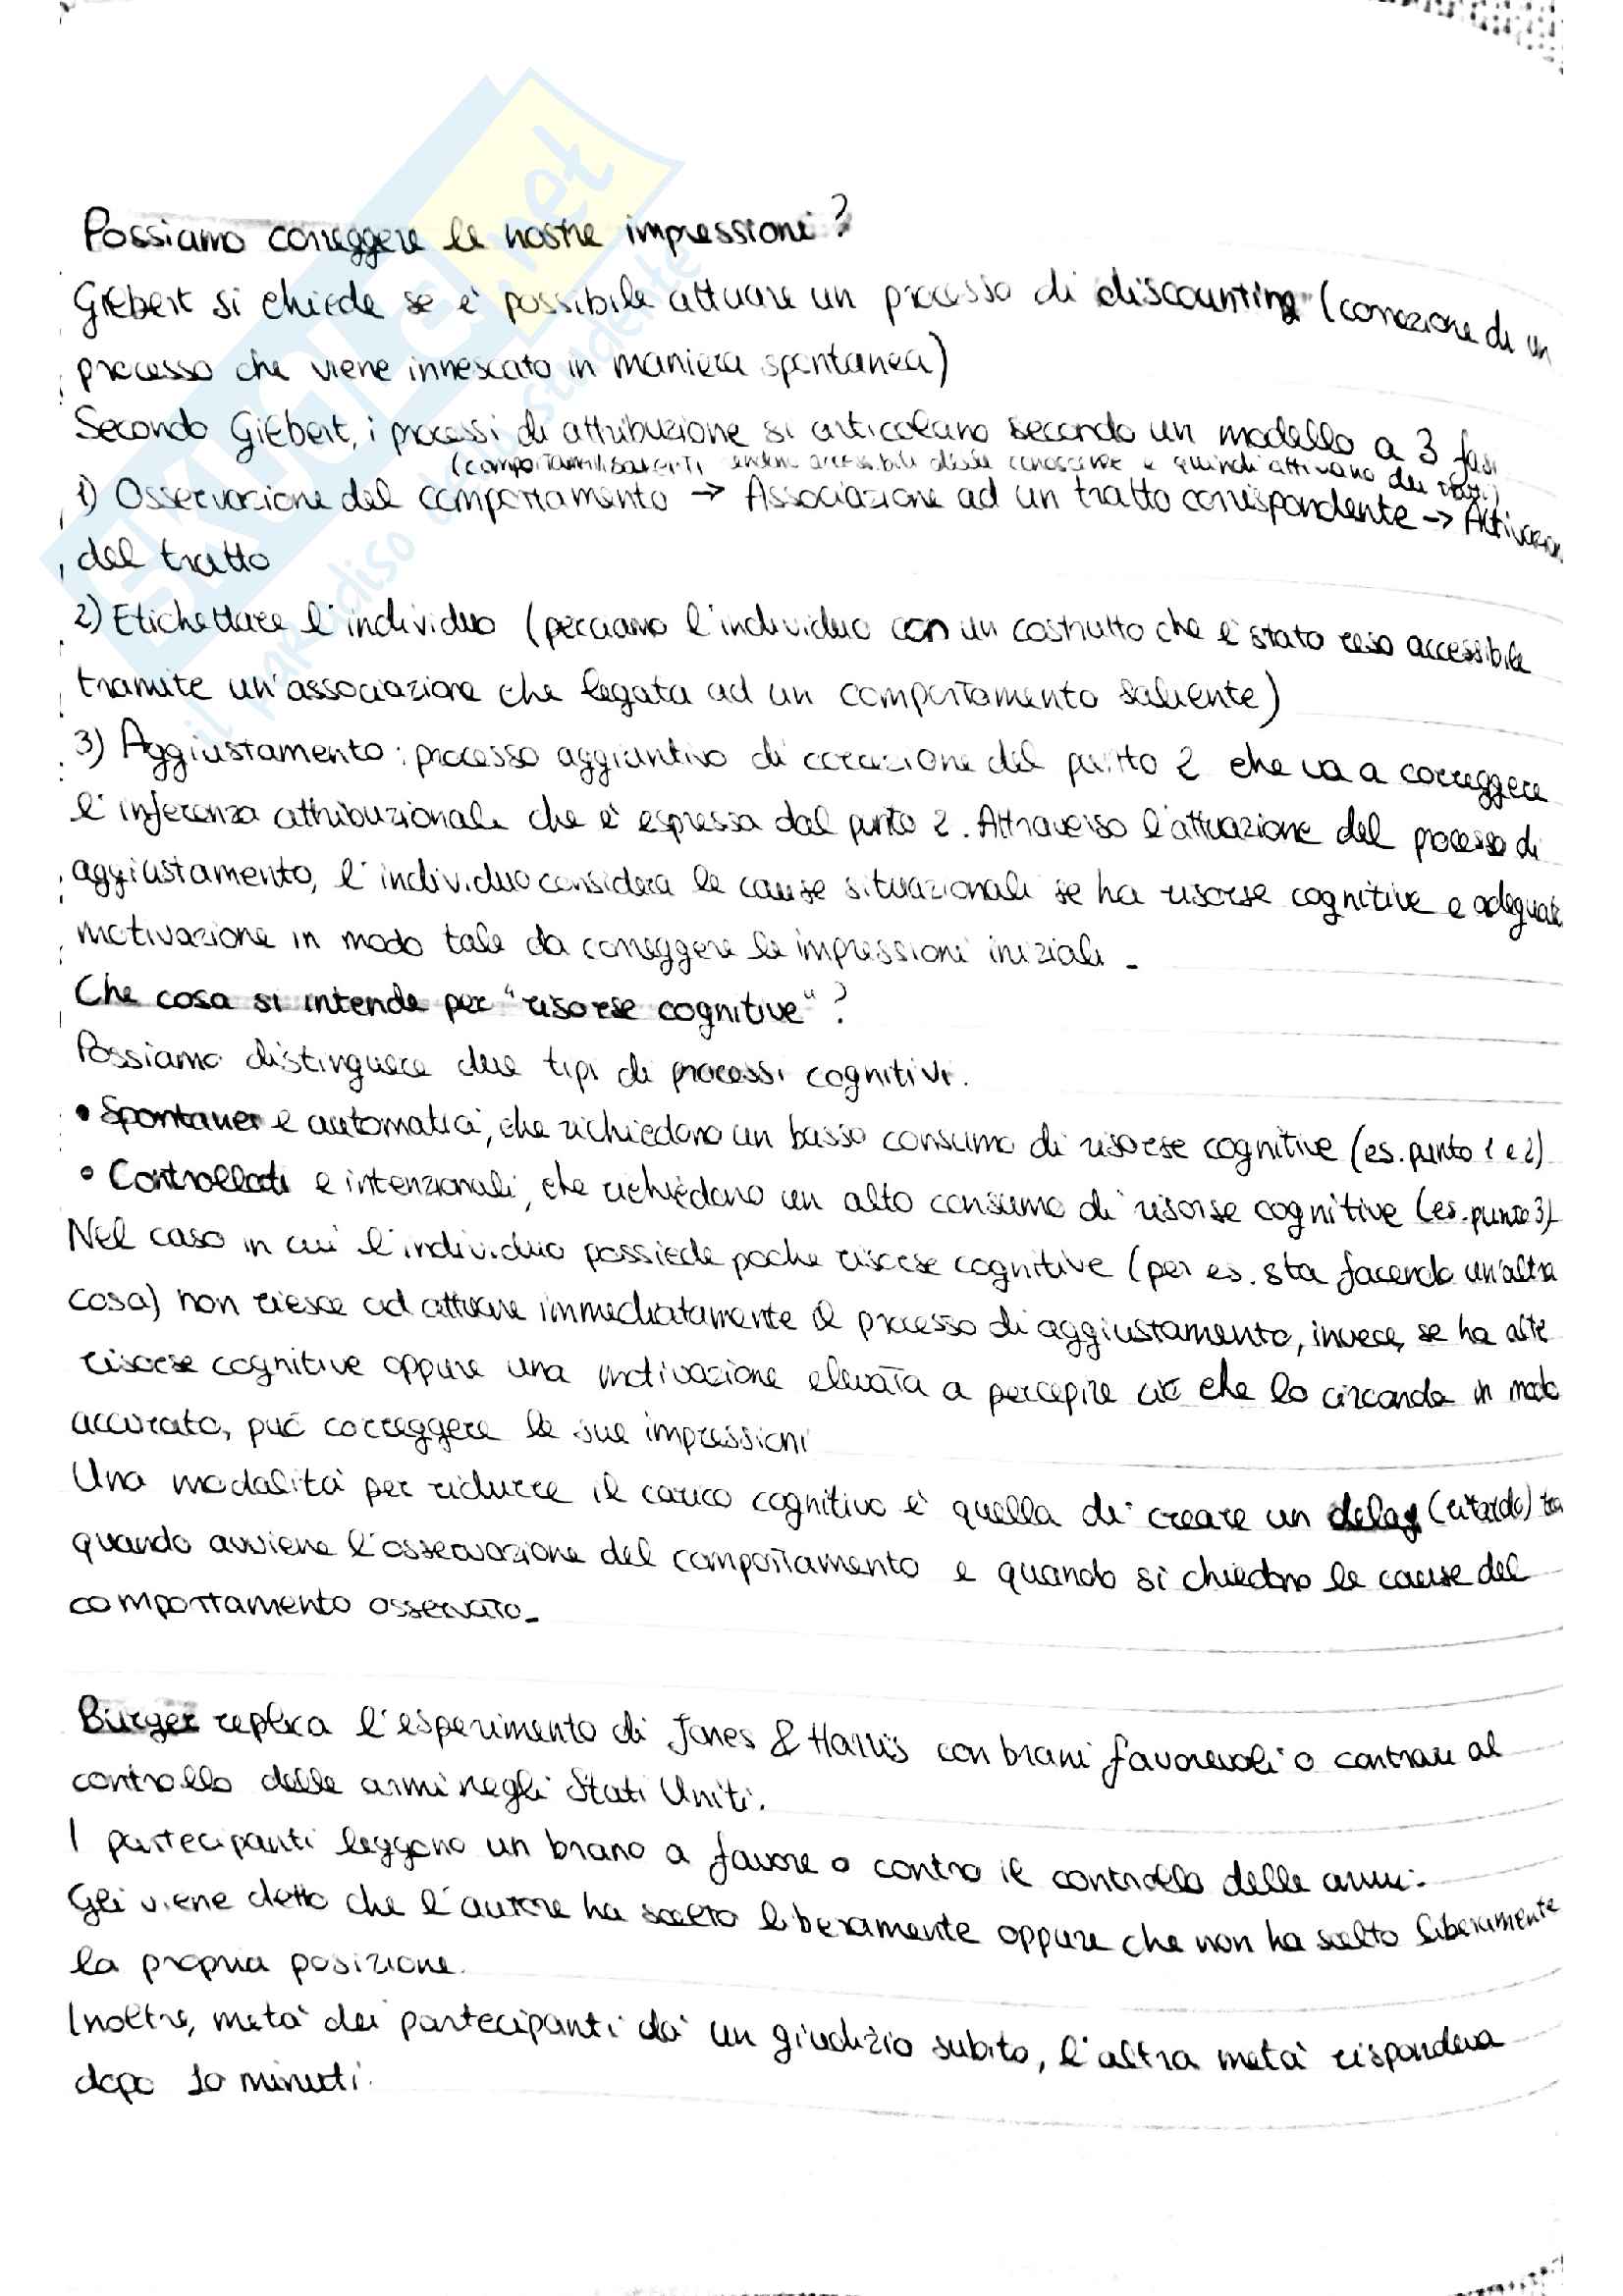 Possiamo correggere le nostre impressioni?
Gilbert si chiede se è possibile attuare un processo di discounting (correzione di un
processo che viene innescato in maniera spontanea)
Secondo Gilbert, i processi di attribuzione si articolano secondo un modello a 3 fasi
(comportamenti salienti rendono accessibili delle conoscenze e quindi attivano dei tratti)
1) Osservazione del comportamento → Associazione ad un tratto corrispondente → Attivazione
del tratto
2) Etichettare l'individuo (perciamo l'individuo con un costrutto che è stato reso accessibile
tramite un'associazione che legata ad un comportamento saliente)
3) Aggiustamento: processo aggiuntivo di correzione del punto 2 che va a correggere
l'inferenza attribuzionale che è espressa dal punto 2. Attraverso l'attuazione del processo di
aggiustamento, l'individuo considera le cause situazionali se ha risorse cognitive e adeguate
motivazione in modo tale da correggere le impressioni iniziali.
Che cosa si intende per "risorse cognitive"?
Possiamo distinguere due tipi di processi cognitivi.
• Spontanei e automatici, che richiedono un basso consumo di risorse cognitive (es. punto 1 e 2)
• Controllati e intenzionali, che richiedono un alto consumo di risorse cognitive (es. punto 3)
Nel caso in cui l'individuo possiede poche risorse cognitive (per es. sta facendo un'altra
cosa) non riesce ad attuare immediatamente il processo di aggiustamento, invece, se ha alte
risorse cognitive oppure una motivazione elevata a percepire ciò che lo circonda in modo
accurato, può correggere le sue impressioni
Una modalità per ridurre il carico cognitivo è quella di creare un delay (ritardo) tra
quando avviene l'osservazione del comportamento e quando si chiedono le cause del
comportamento osservato.
Burger replica l'esperimento di Jones & Harris con brani favorevoli o contrari al
controllo delle armi negli Stati Uniti.
I partecipanti leggono un brano a favore o contro il controllo delle armi.
Gli viene detto che l'autore ha scelto liberamente oppure che non ha scelto liberamente
la propria posizione.
Inoltre, metà dei partecipanti dà un giudizio subito, l'altra metà risponderà
dopo 10 minuti.
SKUOLA.net
il paradiso dello studente